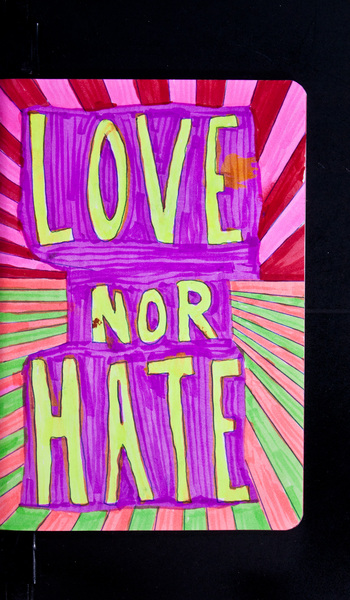 LOVE
NOR
HATE